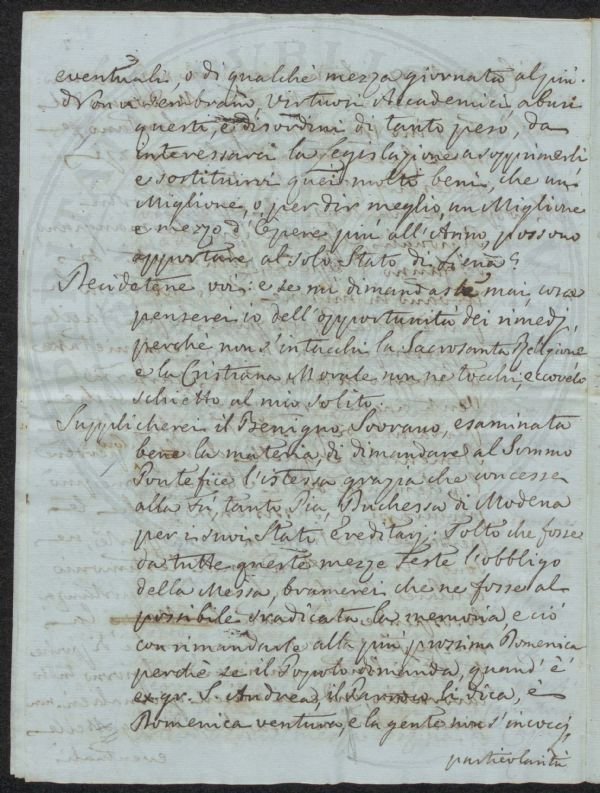 eventuali, o di qualche mezza giornata al più.
Non vi sembrano, virtuosi Accademici, abusi
questi, e disordini di tanto peso, da
interessarci la legislazione a sopprimerli
e sostituirvi quei molti beni, che un
Miglione, o, per dir meglio, un Miglione
e mezzo d'Opere più all'Anno, possono
apportare al solo Stato di Siena?
Decidetene voi: e se mi dimandaste mai, cosa
penserei io dell'opportunità dei rimedj,
perchè non s'intacchi la Sacrosanta Religione
e la Cristiana Morale non ne tocchi, eccovelo
schietto al mio solito.
Supplicherei il Benigno Sovrano, esaminata
bene la materia, di dimandare al Sommo
Pontefice l'istessa grazia che concesse
alla fù, tanto Pia, Duchessa di Modena
per i suoi Stati Ereditarj: Tolto che fosse
da tutte queste mezze Feste l'obbligo
della Messa, bramerei che ne fosse al
possibile sradicata la memoria, e ciò
con rimandarle alla più prossima Domenica
perchè se il Popolo dimanda, quand'è
ex gr. S. Andrea, il Parroco li dica, è
Domenica ventura, e la gente non s'incocci
particolarità